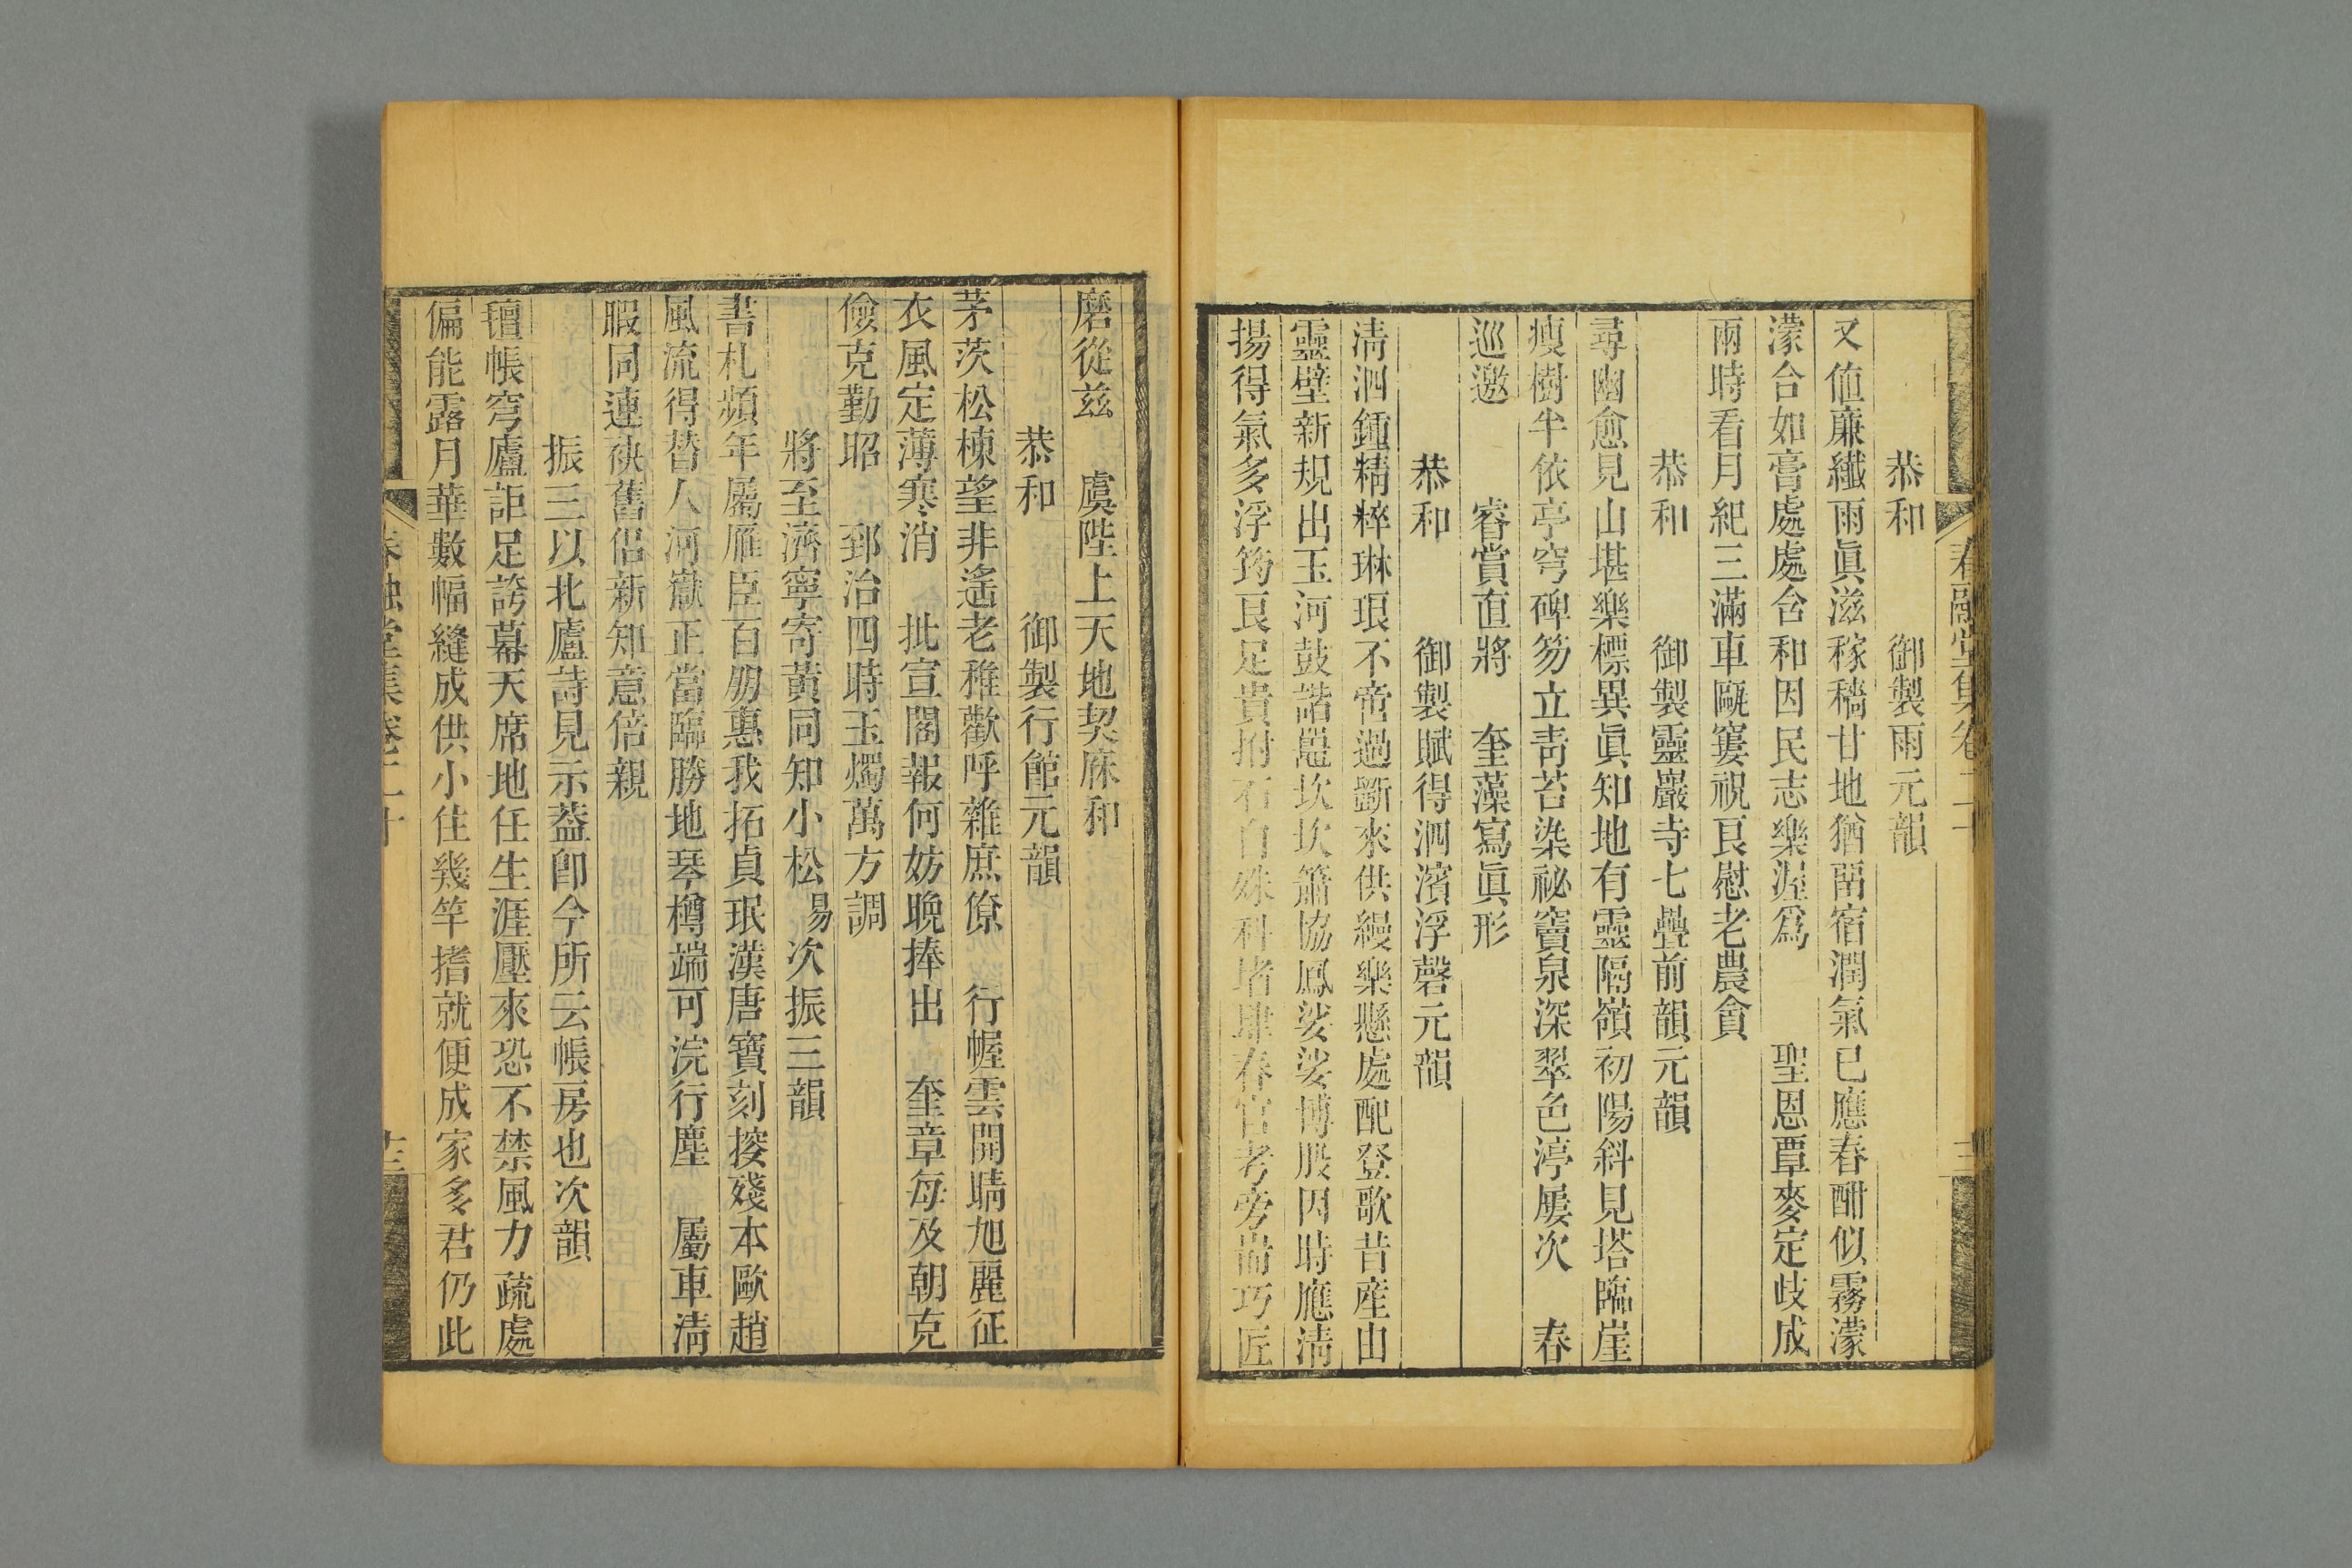 春融堂集卷二十
恭和　御製雨元韻
又値廉纖雨眞滋稼穡甘地猶畱宿潤氣已應春酣似霧濛
濛合如膏處處含和因民志樂渥爲　聖恩覃麥定歧成
兩時看月紀三滿車甌窶祝艮慰老農貪
恭和　御製靈巖寺七疊前韻元韻
尋幽愈見山堪樂標異眞知地有靈隔嶺初陽斜見塔臨崖
瘦樹半依亭穹碑笏立靑苔染祕竇泉深翠色渟屢次　春
巡邀　睿賞直將　奎藻寫眞形
恭和　御製賦得泗濱浮磬元韻
淸泗鍾精粹琳琅不啻過斲來供縵樂懸處配登歌昔産山
靈壁新規出玉河鼓諧鼍坎坎簫協鳳娑娑博股因時應淸
揚得氣多浮筠艮足貴拊石自殊科堵肆春官考旁耑巧匠
磨從玆　虞陛上天地契庥和
恭和　御製行館元韻
茅茨松棟望非遙老稚歡呼雜庶僚　行幄雲開睛旭麗征
衣風定薄寒消　批宣閣報何妨晩捧出　奎章每及朝克
儉克勤昭　郅治四時玉燭萬方調
將至濟寧寄黃同知小松易次振三韻
書札頻年屬雁臣百朋惠我拓貞珉漢唐寶刻按殘本歐趙
風流得替人河嶽正當臨勝地琴樽端可浣行塵　屬車淸
暇同連袂舊侶新知意倍親
振三以北廬詩見示葢卽今所云帳房也次韻
氊帳穹廬詎足誇幕天席地任生涯壓來恐不禁風力疏處
偏能露月華數幅縫成供小住幾竿搘就便成家多君仍此
春融堂集卷二十